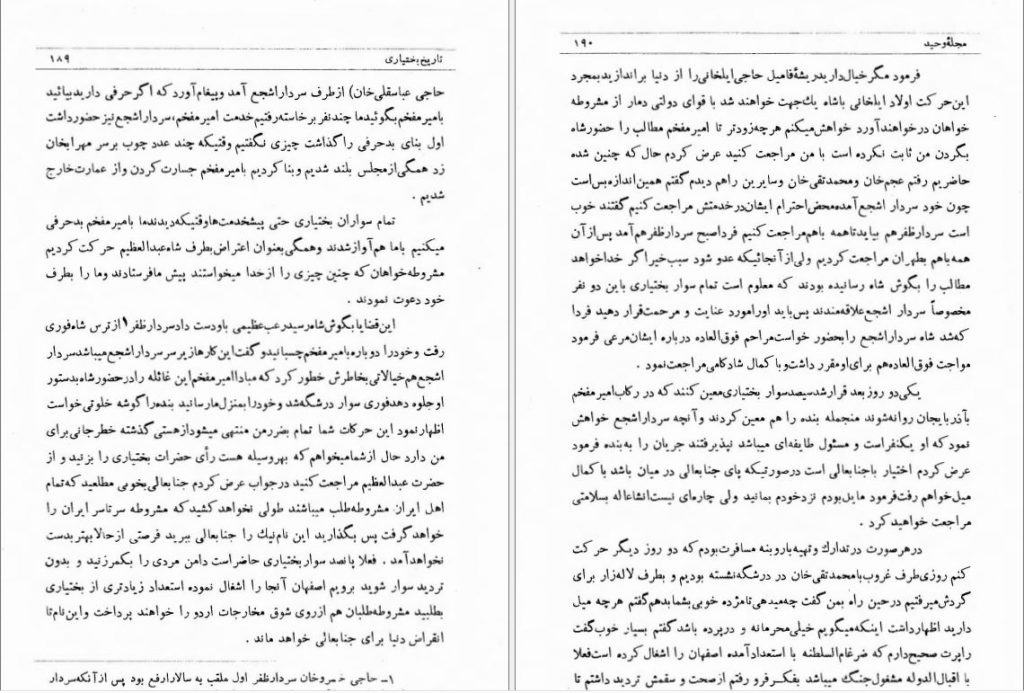 تاریخ بختیاری ۱۸۹
حاجی عباسقلی‌خان) از طرف سردار اشجع آمد و پیغام آورد که اگر حرفی دارید بیائید
با میر مفخم بگوئید ما چند نفر برخاسته رفتیم خدمت امیر مفخم، سردار اشجع نیز حضور داشت
اول بنای بدحرفی را گذاشت چیزی نگفتیم وقتیکه چند عدد چوب بر سر مهرابخان
زد همگی از مجلس بلند شدیم و بنا کردیم بامیر مفخم جسارت کردن و از عمارت خارج
شدیم .
تمام سواران بختیاری حتی پیشخدمت‌ها وقتیکه دیدند ما بامیر مفخم بدحرفی
میکنیم باما هم‌آواز شدند و همگی بعنوان اعتراض بطرف شاه‌عبدالعظیم حرکت کردیم
مشروطه‌خواهان که چنین چیزی را از خدا میخواستند پیش ما فرستادند و ما را بطرف
خود دعوت نمودند .
این قضایا بگوش شاه رسید رعب عظیمی باو دست داد سردار ظفر ۱ از ترس شاه فوری
رفت و خود را دوباره بامیر مفخم چسبانید و گفت این کارها زیر سر سردار اشجع میباشد سردار
اشجع هم خیالاتی بخاطرش خطور کرد که مبادا امیر مفخم این غائله را در حضور شاه بدستور
او جلوه دهد فوری سوار درشگه شد و خود را بمنزل ما رسانید بنده را گوشه خلوتی خواست
اظهار نمود این حرکات شما تمام بضرر من منتهی میشود از هستی گذشته خطر جانی برای
من دارد حال از شما میخواهم که بهر وسیله هست رأی حضرات بختیاری را بزنید و از
حضرت عبدالعظیم مراجعت کنید در جواب عرض کردم جنابعالی بخوبی مطلعید که تمام
اهل ایران مشروطه‌طلب میباشند طولی نخواهد کشید که مشروطه سرتاسر ایران را
خواهد گرفت پس بگذارید این نام نیک را جنابعالی ببرید فرصتی از حالا بهتر بدست
نخواهد آمد . فعلا پانصد سوار بختیاری حاضر است دامن مردی را بکمر زنید و بدون
تردید سوار شوید برویم اصفهان آنجا را اشغال نموده استعداد زیادتری از بختیاری
بطلبید مشروطه‌طلبان هم از روی شوق مخارجات اردو را خواهند پرداخت و این نام تا
انقراض دنیا برای جنابعالی خواهد ماند .
۱ـ حاجی خسروخان سردار ظفر اول ملقب به سالار ارفع بود پس از آنکه سردار
مجلهٔ وحید ۱۹۰
فرمود مگر خیال دارید ریشهٔ فامیل حاجی ایلخانی را از دنیا براندازید بمجرد
این حرکت اولاد ایلخانی باشاه یک‌جهت خواهند شد با قوای دولتی دمار از مشروطه
خواهان درخواهند آورد خواهش میکنم هرچه زودتر تا امیر مفخم مطالب را حضور شاه
بگردن من ثابت نکرده است با من مراجعت کنید عرض کردم حال که چنین شده
حاضریم رفتم عجم‌خان و محمدتقی‌خان و سایرین را هم دیدم گفتم همین اندازه بس است
چون خود سردار اشجع آمده محض احترام ایشان در خدمتش مراجعت کنیم گفتند خوب
است سردار ظفر هم بیاید تا همه باهم مراجعت کنیم فردا صبح سردار ظفر هم آمد پس از آن
همه باهم بطهران مراجعت کردیم ولی از آنجائیکه عدو شود سبب خیر اگر خدا خواهد
مطالب را بگوش شاه رسانیده بودند که معلوم است تمام سوار بختیاری باین دو نفر
مخصوصاً سردار اشجع علاقه‌مندند پس باید او را مورد عنایت و مرحمت قرار دهید فردا
که شد شاه سردار اشجع را بحضور خواست مراحم فوق‌العاده درباره ایشان مرعی فرمود
مواجب فوق‌العاده هم برای او مقرر داشت و با کمال شادکامی مراجعت نمود .
یکی دو روز بعد قرار شد سیصد سوار بختیاری معین کنند که در رکاب امیر مفخم
بآذربایجان روانه شوند منجمله بنده را هم معین کردند و آنچه سردار اشجع خواهش
نمود که او یکنفر است و مسئول طایفه‌ای میباشد نپذیرفتند جریان را به بنده فرمود
عرض کردم اختیار باجنابعالی است در صورتیکه پای جنابعالی در میان باشد با کمال
میل خواهم رفت فرمود مایل بودم نزد خودم بمانید ولی چاره‌ای نیست انشاءاله بسلامتی
مراجعت خواهید کرد .
در هر صورت در تدارک و تهیه بار و بنه مسافرت بودم که دو روز دیگر حرکت
کنم روزی طرف غروب با محمدتقی‌خان در درشگه نشسته بودیم و بطرف لاله‌زار برای
گردش میرفتیم در حین راه بمن گفت چه میدهی تا مژده خوبی بشما بدهم گفتم هرچه میل
دارید اظهار داشت اینکه میگویم خیلی محرمانه و در پرده باشد گفتم بسیار خوب گفت
راپرت صحیح دارم که ضرغام‌السلطنه با استعداد آمده اصفهان را اشغال کرده است فعلا
با اقبال‌الدوله مشغول جنگ میباشد بفکر فرو رفتم از صحت و سقمش تردید داشتم تا